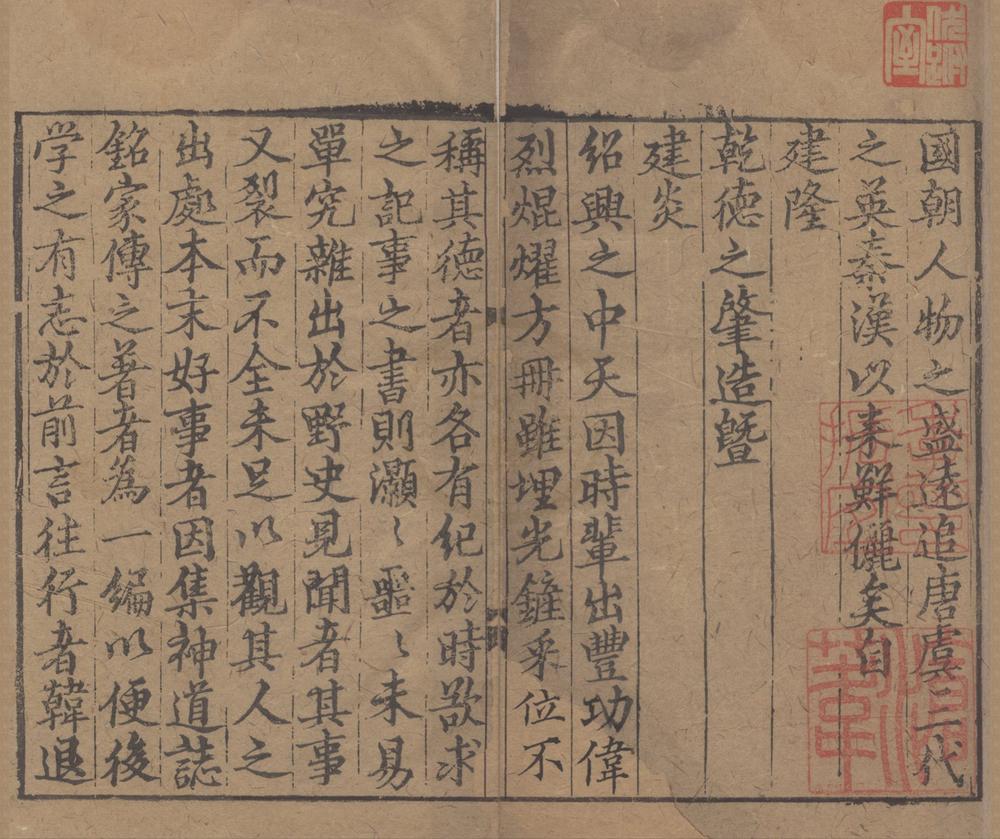 國朝人物之盛遠追唐虞三代
之英秦漢以来鮮儷矣自
建隆
乾德之肇造暨
建炎
紹興之中天因時輩出豐功偉
烈焜燿方冊雖埋光鏟采位不
稱其德者亦各有紀於時欲求
之記事之書則灝〻噩〻未易
單究雜出於野史見聞者其事
又裂而不全未足以觀其人之
出處本末好事者因集神道誌
銘家傳之著者為一編以便後
学之有志於前言往行者韓退